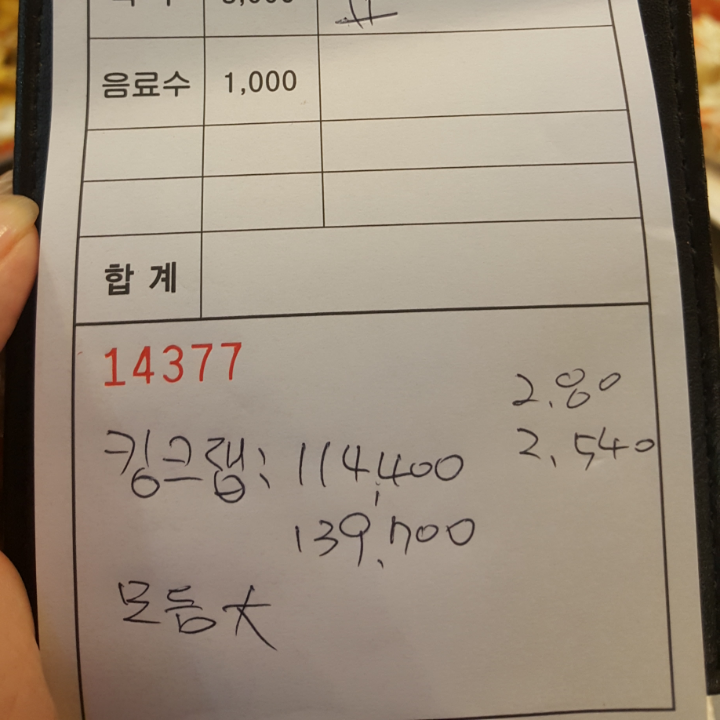 음료수 1,000
합 계
14377
2.80
2.540
킹크랩: 114,400
139,700
모듬大